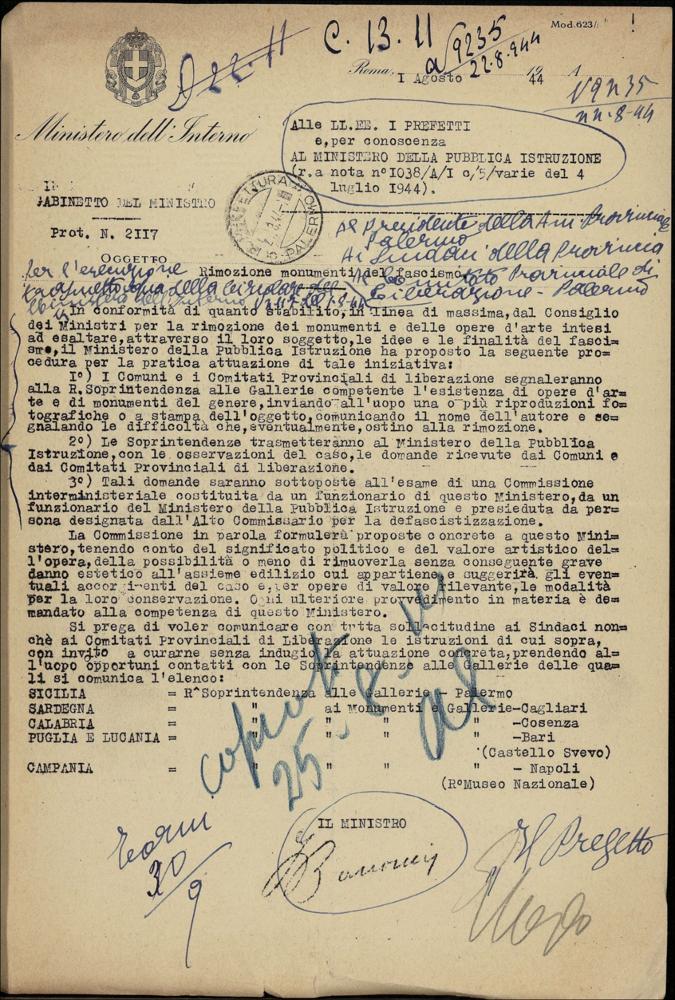 Mod.623/
C. 13. 11
D 22-11
9235
22.8.944
Roma, 1944
I Agosto
V9235
22-8-44
Ministero dell'Interno
Alle LL.EE. I PREFETTI
e,per conoscenza
AL MINISTERO DELLA PUBBLICA ISTRUZIONE
(r.a nota n°1038/A/I c/5/varie del 4
luglio 1944).
GABINETTO DEL MINISTRO
Prot. N. 2117
PALERMO
Al Presidente della Am Provinciale
Palermo
Ai Sindaci della Provincia
Al Comitato Provinciale di
Liberazione - Palermo
OGGETTO
Per l'esecuzione
Rimozione monumenti del fascismo
In conformità di quanto stabilito,in linea di massima,dal Consiglio
dei Ministri per la rimozione dei monumenti e delle opere d'arte intesi
ad esaltare,attraverso il loro soggetto,le idee e le finalità del fasci=
smo,il Ministero della Pubblica Istruzione ha proposto la seguente pro=
cedura per la pratica attuazione di tale iniziativa:
I°) I Comuni e i Comitati Provinciali di liberazione segnaleranno
alla R.Soprintendenza alle Gallerie competente l'esistenza di opere d'ar=
te e di monumenti del genere,inviando all'uopo una o più riproduzioni fo=
tografiche o a stampa dell'oggetto,comunicando il nome dell'autore e se=
gnalando le difficoltà che,eventualmente,ostino alla rimozione.
2°) Le Soprintendenze trasmetteranno al Ministero della Pubblica
Istruzione,con le osservazioni del caso,le domande ricevute dai Comuni e
dai Comitati Provinciali di liberazione.
3°) Tali domande saranno sottoposte all'esame di una Commissione
interministeriale costituita da un funzionario di questo Ministero,da un
funzionario del Ministero della Pubblica Istruzione e presieduta da per=
sona designata dall'Alto Commissario per la defascistizzazione.
La Commissione in parola formulerà proposte concrete a questo Mini=
stero,tenendo conto del significato politico e del valore artistico del=
l'opera,della possibilità o meno di rimuoverla senza conseguente grave
danno estetico all'assieme edilizio cui appartiene,e suggerirà gli even=
tuali accorgimenti del caso e,per opere di valore rilevante,le modalità
per la loro conservazione. Ogni ulteriore provvedimento in materia è de=
mandato alla competenza di questo Ministero.
Si prega di voler comunicare con tutta sollecitudine ai Sindaci non=
chè ai Comitati Provinciali di Liberazione le istruzioni di cui sopra,
con invito a curarne senza indugio la attuazione concreta,prendendo al=
l'uopo opportuni contatti con le Soprintendenze alle Gallerie delle qua=
li si comunica l'elenco:
SICILIA = R°Soprintendenza alle Gallerie - Palermo
SARDEGNA = " ai Monumenti e Gallerie-Cagliari
CALABRIA = " " " -Cosenza
PUGLIA E LUCANIA = " " " -Bari
(Castello Svevo)
CAMPANIA = " " " - Napoli
(R°Museo Nazionale)
copiato
25-8-44
IL MINISTRO
30/9
Il Prefetto